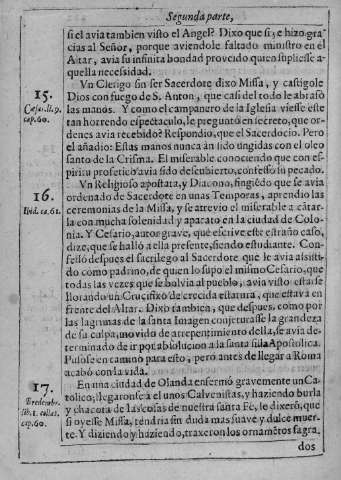 Segunda parte,
si el avia tambien visto el Angel? Dixo que si, e hizo gra-
cias al Señor, porque aviendole faltado ministro en el
Altar, avia su infinita bondad proveido quien supliesse a-
quella necesidad.
15.
Vn Clerigo sin ser Sacerdote dixo Missa, y castigole
Dios con fuego de S. Anton, que casi del todo le abrasò
Cæsar. li. 9.
cap. 60.
las manos. Y como el campanero de la Iglesia viesse este
tan horrendo espectaculo, le preguntò en secreto, que or-
denes avia recebido? Respondio, que el Sacerdocio. Pero
el añadio: Essas manos nunca an sido ungidas con el oleo
santo de la Crisma. El miserable conociendo que con es-
piritu profetico avia sido descubierto, confessò su pecado.
16.
Ibid. ca. 61.
Vn Religioso apostata, y Diacono, fingiẽdo que se avia
ordenado de Sacerdote en unas Temporas, aprendio las
ceremonias de la Missa, y se atrevio el miserable a cãtar-
la con mucha solenidad y aparato en la ciudad de Colo-
nia. Y Cesario, autor grave, que escrive este estraño caso,
dize, que se hallò a ella presente, siendo estudiante. Con-
fessò despues el sacrilego al Sacerdote que le avia assisti-
do como padrino, de quien lo supo el mismo Cesario, que
todas las vezes que se bolvia al pueblo, avia visto estarse
llorando un Crucifixo de crecida estatura, que estava en
frente del Altar. Dixo tambien, que despues, como por
las lagrimas de la santa Imagen conjeturasse la grandeza
de su culpa, movido de arrepentimiento della, se avia de-
terminado de ir por absolucion a la santa silla Apostolica.
Pusose en camino para esto, pero antes de llegar a Roma
acabò con la vida.
17.
Bredembr.
lib. 1. collat.
cap. 60.
En una ciudad de Olanda enfermò gravemente un Ca-
tolico; llegaronse a el unos Calvenistas, y haziendo burla
y chacota de las cosas de nuestra santa Fè, le dixerõ, que
si oyesse Missa, tendria sin duda mas suave y dulce muer-
te. Y diziendo y haziendo, traxeron los ornamẽtos sagra-
dos